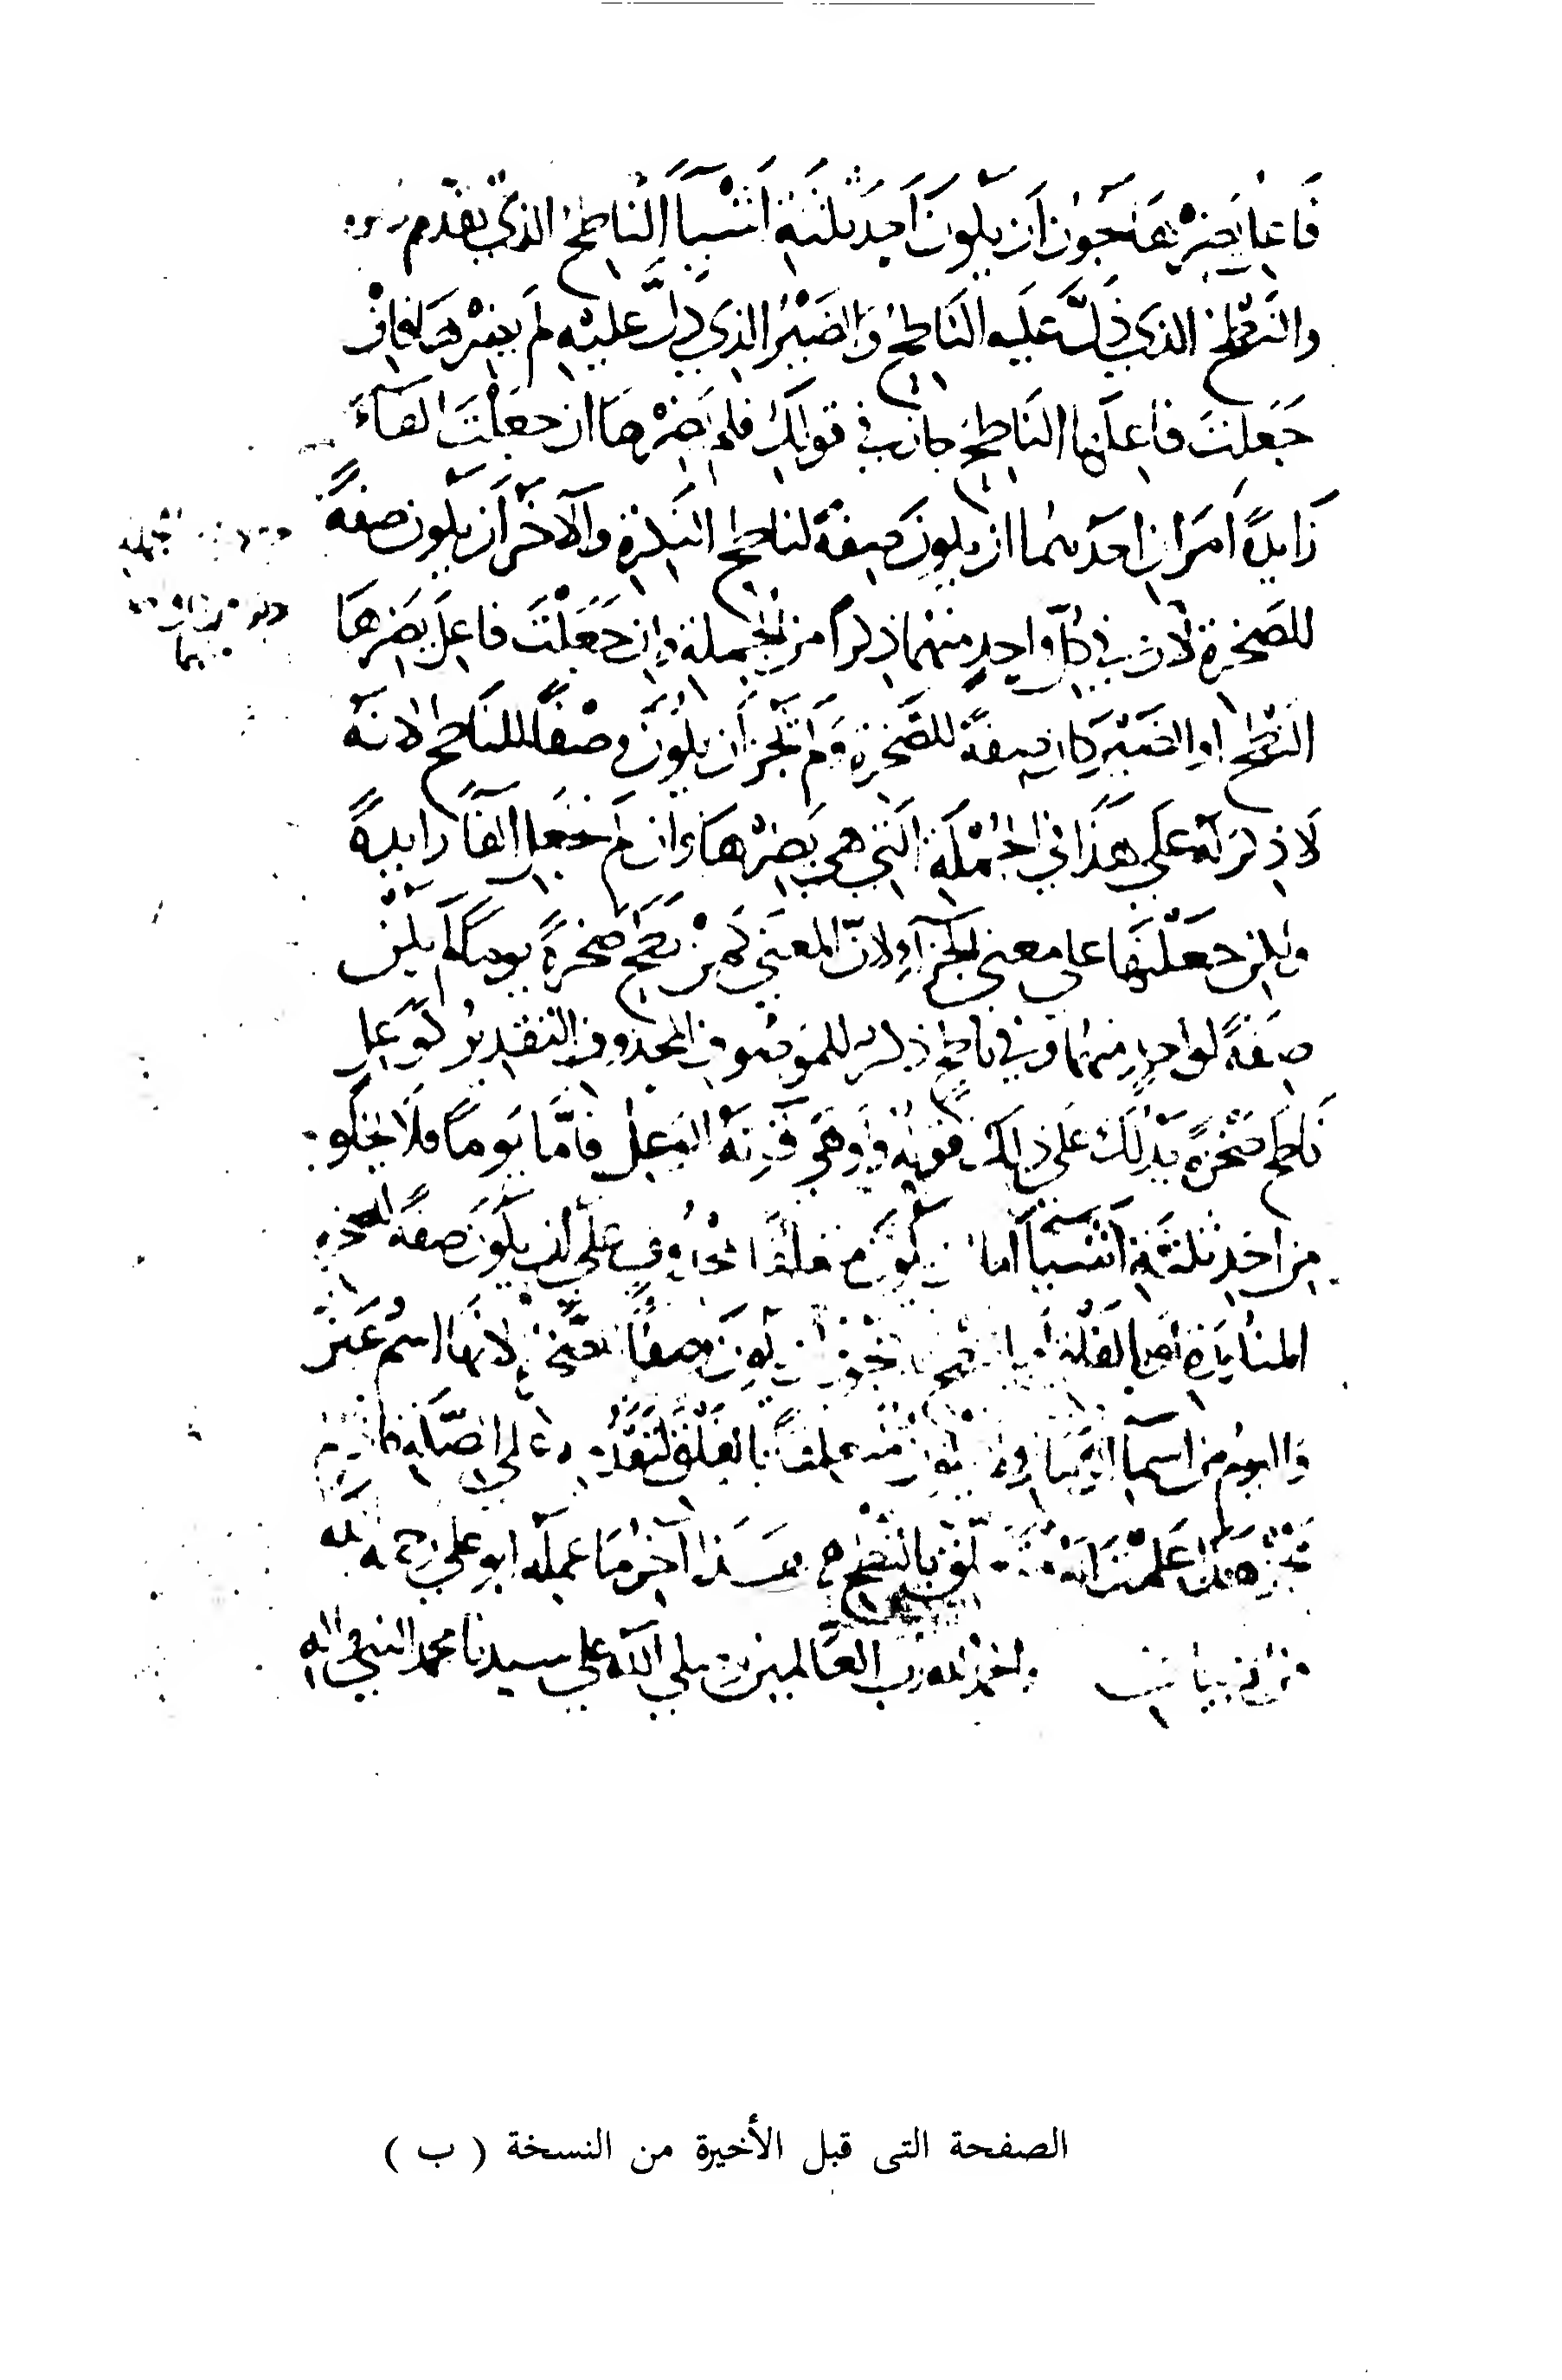 فاعل يضرها يجوز أن يكون أحد ثلثة أشيآء الناطح الذي تقدم ذكره
والنطح الذي دل عليه الناطح والضمير الذي دل عليه لم يضرها فإن
جعلت فاعلها الناطح جاز في قولك فلم يضرها ان جعلت الفآء
زايدة أمران احدهما ان يكون صفة لناطح النكرة والآخر أن يكون صفة
للصخرة لان في كل واحد منهما ذكرا من الجملة وان جعلت فاعل يضرها
النطح او الضمير كان صفة للصخرة ولم يجز أن يكون وصفا للناطح لانه
لا ذكر له على هذا في الجملة التي هي يضرها وان لم تجعل الفآ زايدة
ولكن جعلتها على معنى الجزآء لان المعنى لمن نطح صخرة يوما لم يكن
صفة لواحد منهما وفي ناطح ذكر للموصوف المحذوف التقدير كوعل
ناطح صخرة يدلك على ذلك قوله وأوهى قرنه الوعل فأما يوما فلا يخلو
من احد ثلثة أشيآ أما ان يكون متعلقا بمحذوف على ان يكون صفة لصخرة
المتأخرة او الفلق او النطح لا يجوز ان يكون وصفا لصخرة لانها اسم عين
واليوم من اسمآ الزمان ولا يكون متعلقا بالفلق لتقدمه على الصلة فاذا لم
يجز هذا علمت انه متعلق بالنطح هذا آخر ما عمله ابو علي رحمه الله
من الابيات والحمد لله رب العالمين وصلى الله على سيدنا محمد النبي وآله
الصفحة التى قبل الأخيرة من النسخة ( ب )